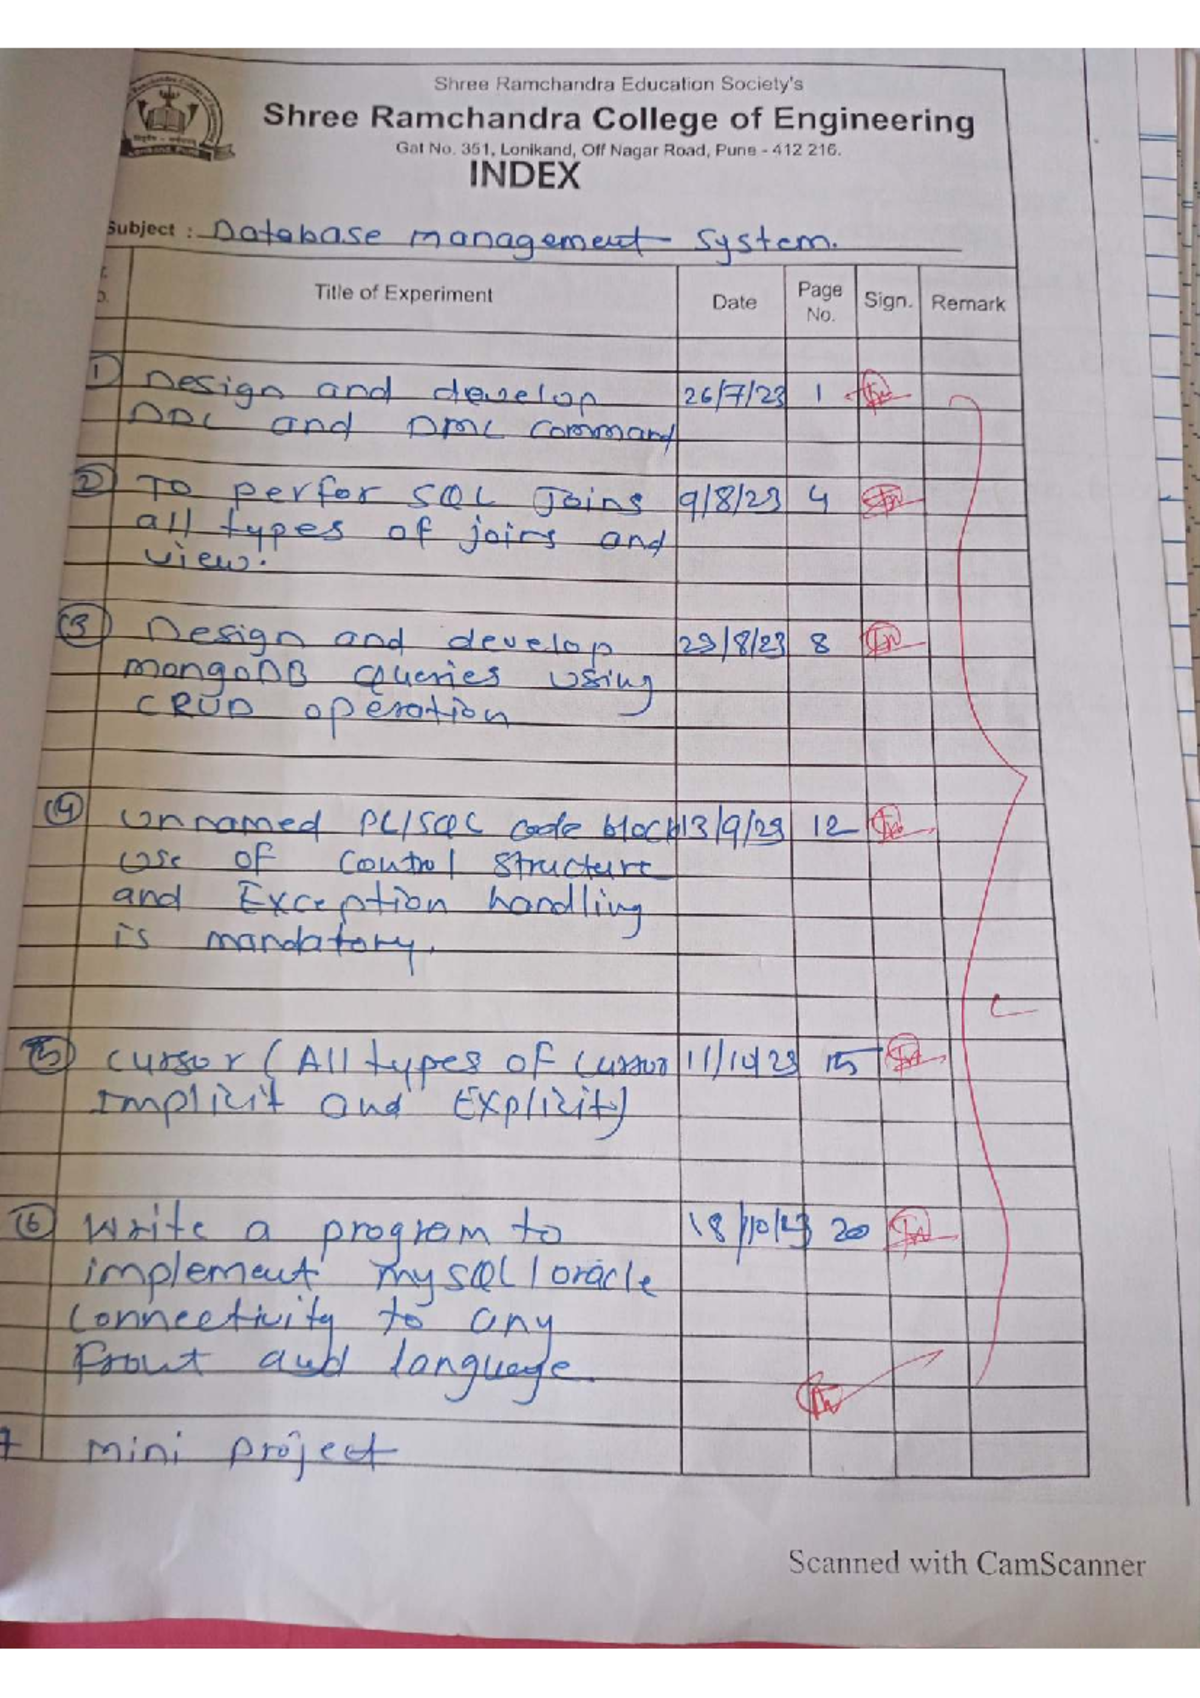 Shree Ramchandra Education Society's
Shree Ramchandra College of Engineering
Gat No. 351, Lonikand, Off Nagar Road, Pune - 412 216.
INDEX
Subject : Database management System.
Title of Experiment Date Page No. Sign. Remark
1 Design and develop 26/7/23 1
DDL and DML command
2 To perfor SQL Joins 9/8/23 4
all types of joins and
view.
3 Design and develop 23/8/23 8
mongoDB Queries using
CRUD operation
4 Unnamed PL/SQL code block 13/9/23 12
Use of Control structure
and Exception handling
is mandatory.
5 Cursor (All types of Cursor 11/10/23 15
Implicit and Explicit)
6 Write a program to 18/10/23 20
implement mySQL/oracle
Connectivity to any
front and language.
7 mini project
Scanned with CamScanner